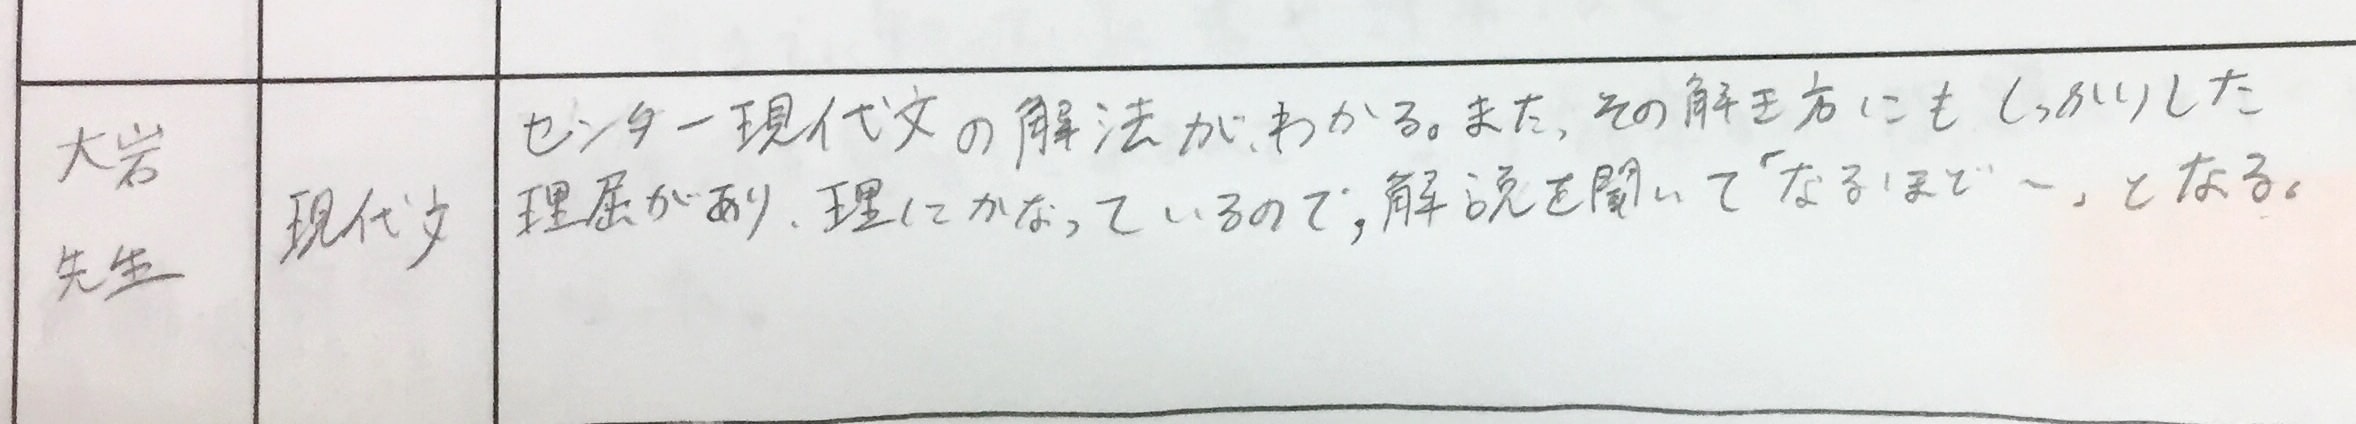 大岩
先生
現代文
センター現代文の解法がわかる。また、その解き方にもしっかりした
理屈があり、理にかなっているので、解説を聞いて「なるほど〜」となる。